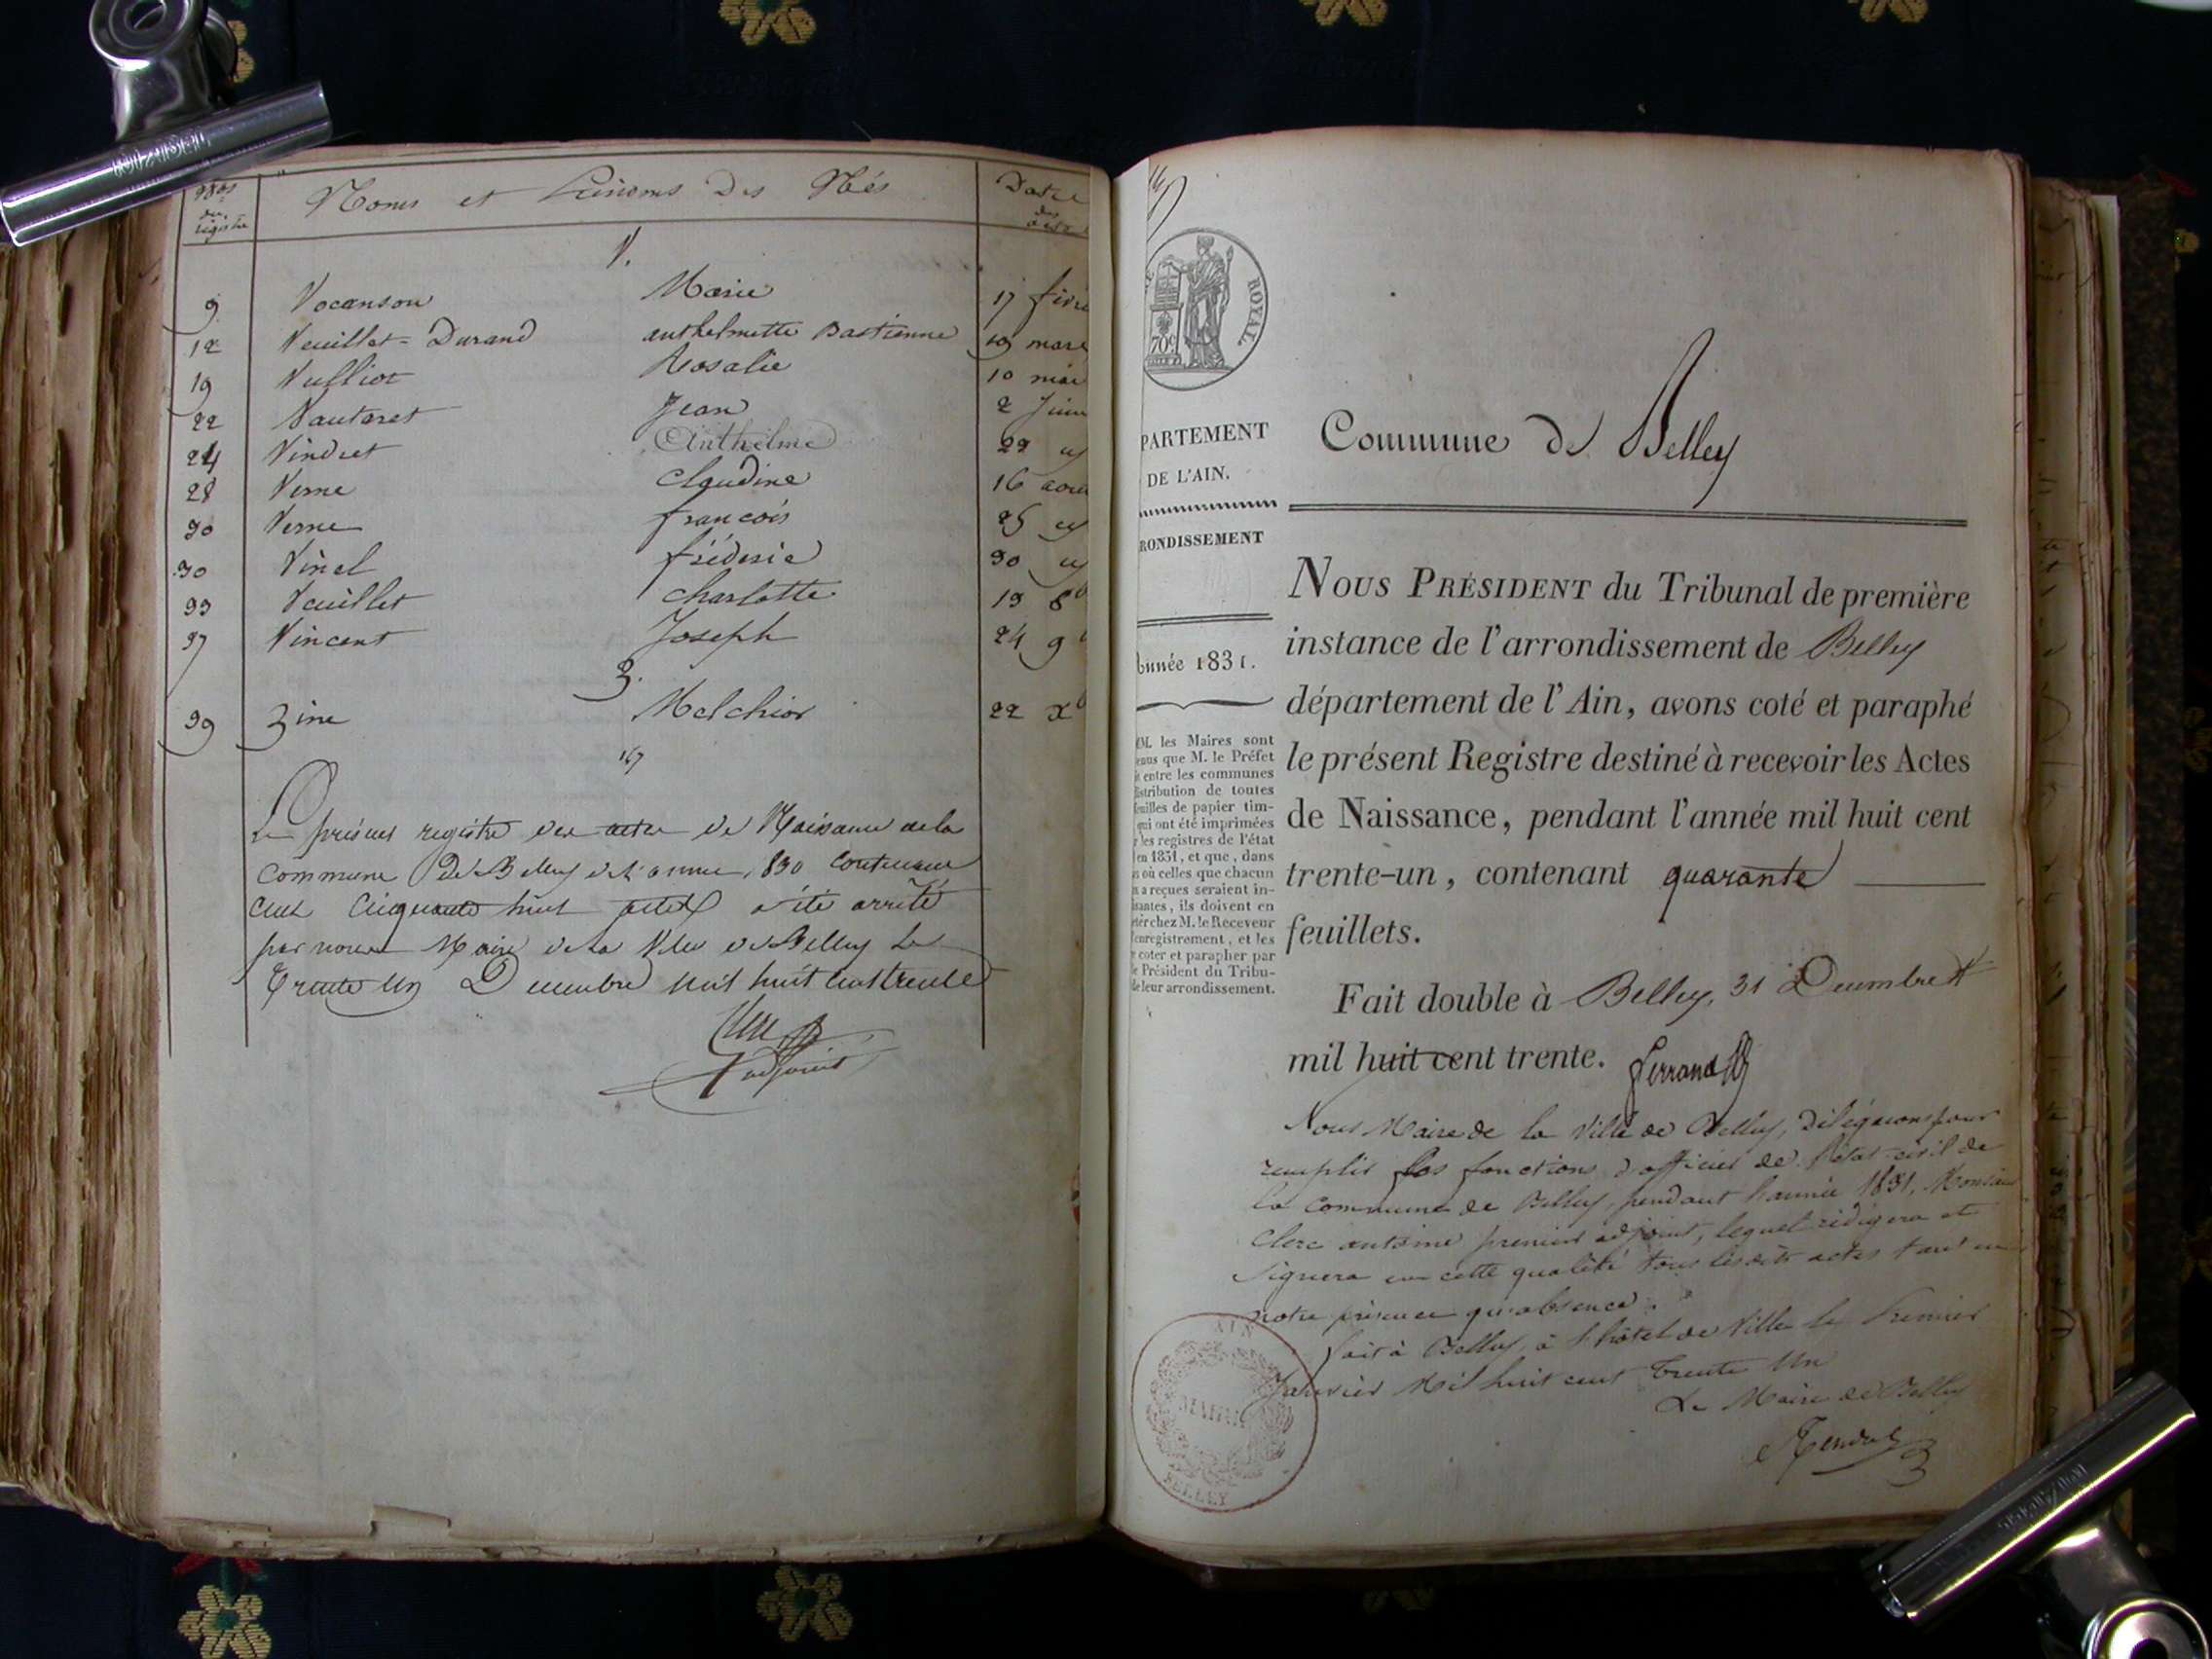 Nos du registre Noms et Prénoms Des Nés Date des
V.
9 Vocanson Marie 17
12 Veuillet = Durand anthelmette Bastienne 19 mars
19 Vulliot Rosalie 10 mai
22 Vautaret Jean 2 Juin
24 Vindret Anthelme 22
28 Verne Claudine 16
30 Verne françois 25
30 Vinel fréderic 30
33 Veuillet Charlotte 19 8b
37 Vincent Joseph 24 9b
Z.
39 Zine Melchior 22 Xb
Le présent registre des actes de Naissance de la
Commune De Belley de l'année 1830 Contenant
Cent Cinquante huit actes a été arrêté
par nous Maire de la Ville de Belley Le
Trente Un Décembre mil huit Cent trente
adjoint
ROYAL
70c
PARTEMENT
DE L'AIN.
RONDISSEMENT
Année 1831.
MM. les Maires sont
enus que M. le Préfet
entre les communes
distribution de toutes
feuilles de papier tim-
qui ont été imprimées
r les registres de l'état
en 1831, et que, dans
s où celles que chacun
a reçues seraient in-
isantes, ils doivent en
eter chez M. le Receveur
l'enregistrement, et les
coter et parapher par
le Président du Tribu-
de leur arrondissement.
Commune de Belley
NOUS PRÉSIDENT du Tribunal de première
instance de l'arrondissement de Belley
département de l'Ain, avons coté et paraphé
le présent Registre destiné à recevoir les Actes
de Naissance, pendant l'année mil huit cent
trente-un, contenant quarante
feuillets.
Fait double à Belley, 31 Décembre
mil huit cent trente. Ferrand
Nous Maire de la Ville de Belley, déléguons pour
remplir les fonctions d'officier de l'état-civil de
la Commune de Belley, pendant l'année 1831, Monsieur
Clerc antoine premier adjoint, lequel rédigera et
Signera en cette qualité tous lesdits actes tant en
notre présence qu'absence.
fait à Belley, à l'hôtel de Ville le Premier
Janvier Mil huit cent Trente Un
Le Maire de Belley
AIN
MAIRIE
BELLEY